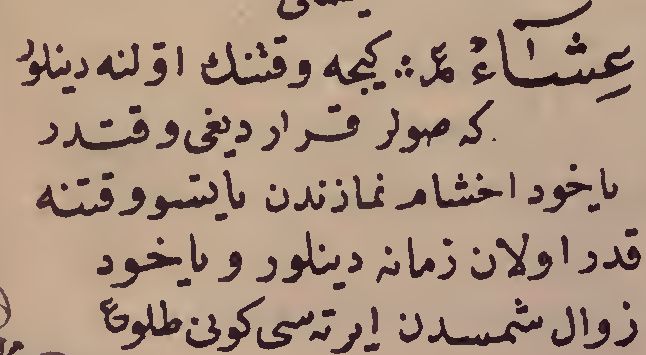 عِشَآءُ عر ؞ كيجه وقتنك اوّلنه دينلور
كه صولر قرارديغى وقتدر
ياخود اخشام نمازندن ياتسو وقتنه
قدر اولان زمانه دينلور و ياخود
زوال شمسدن ايرته سى كونى طلوع